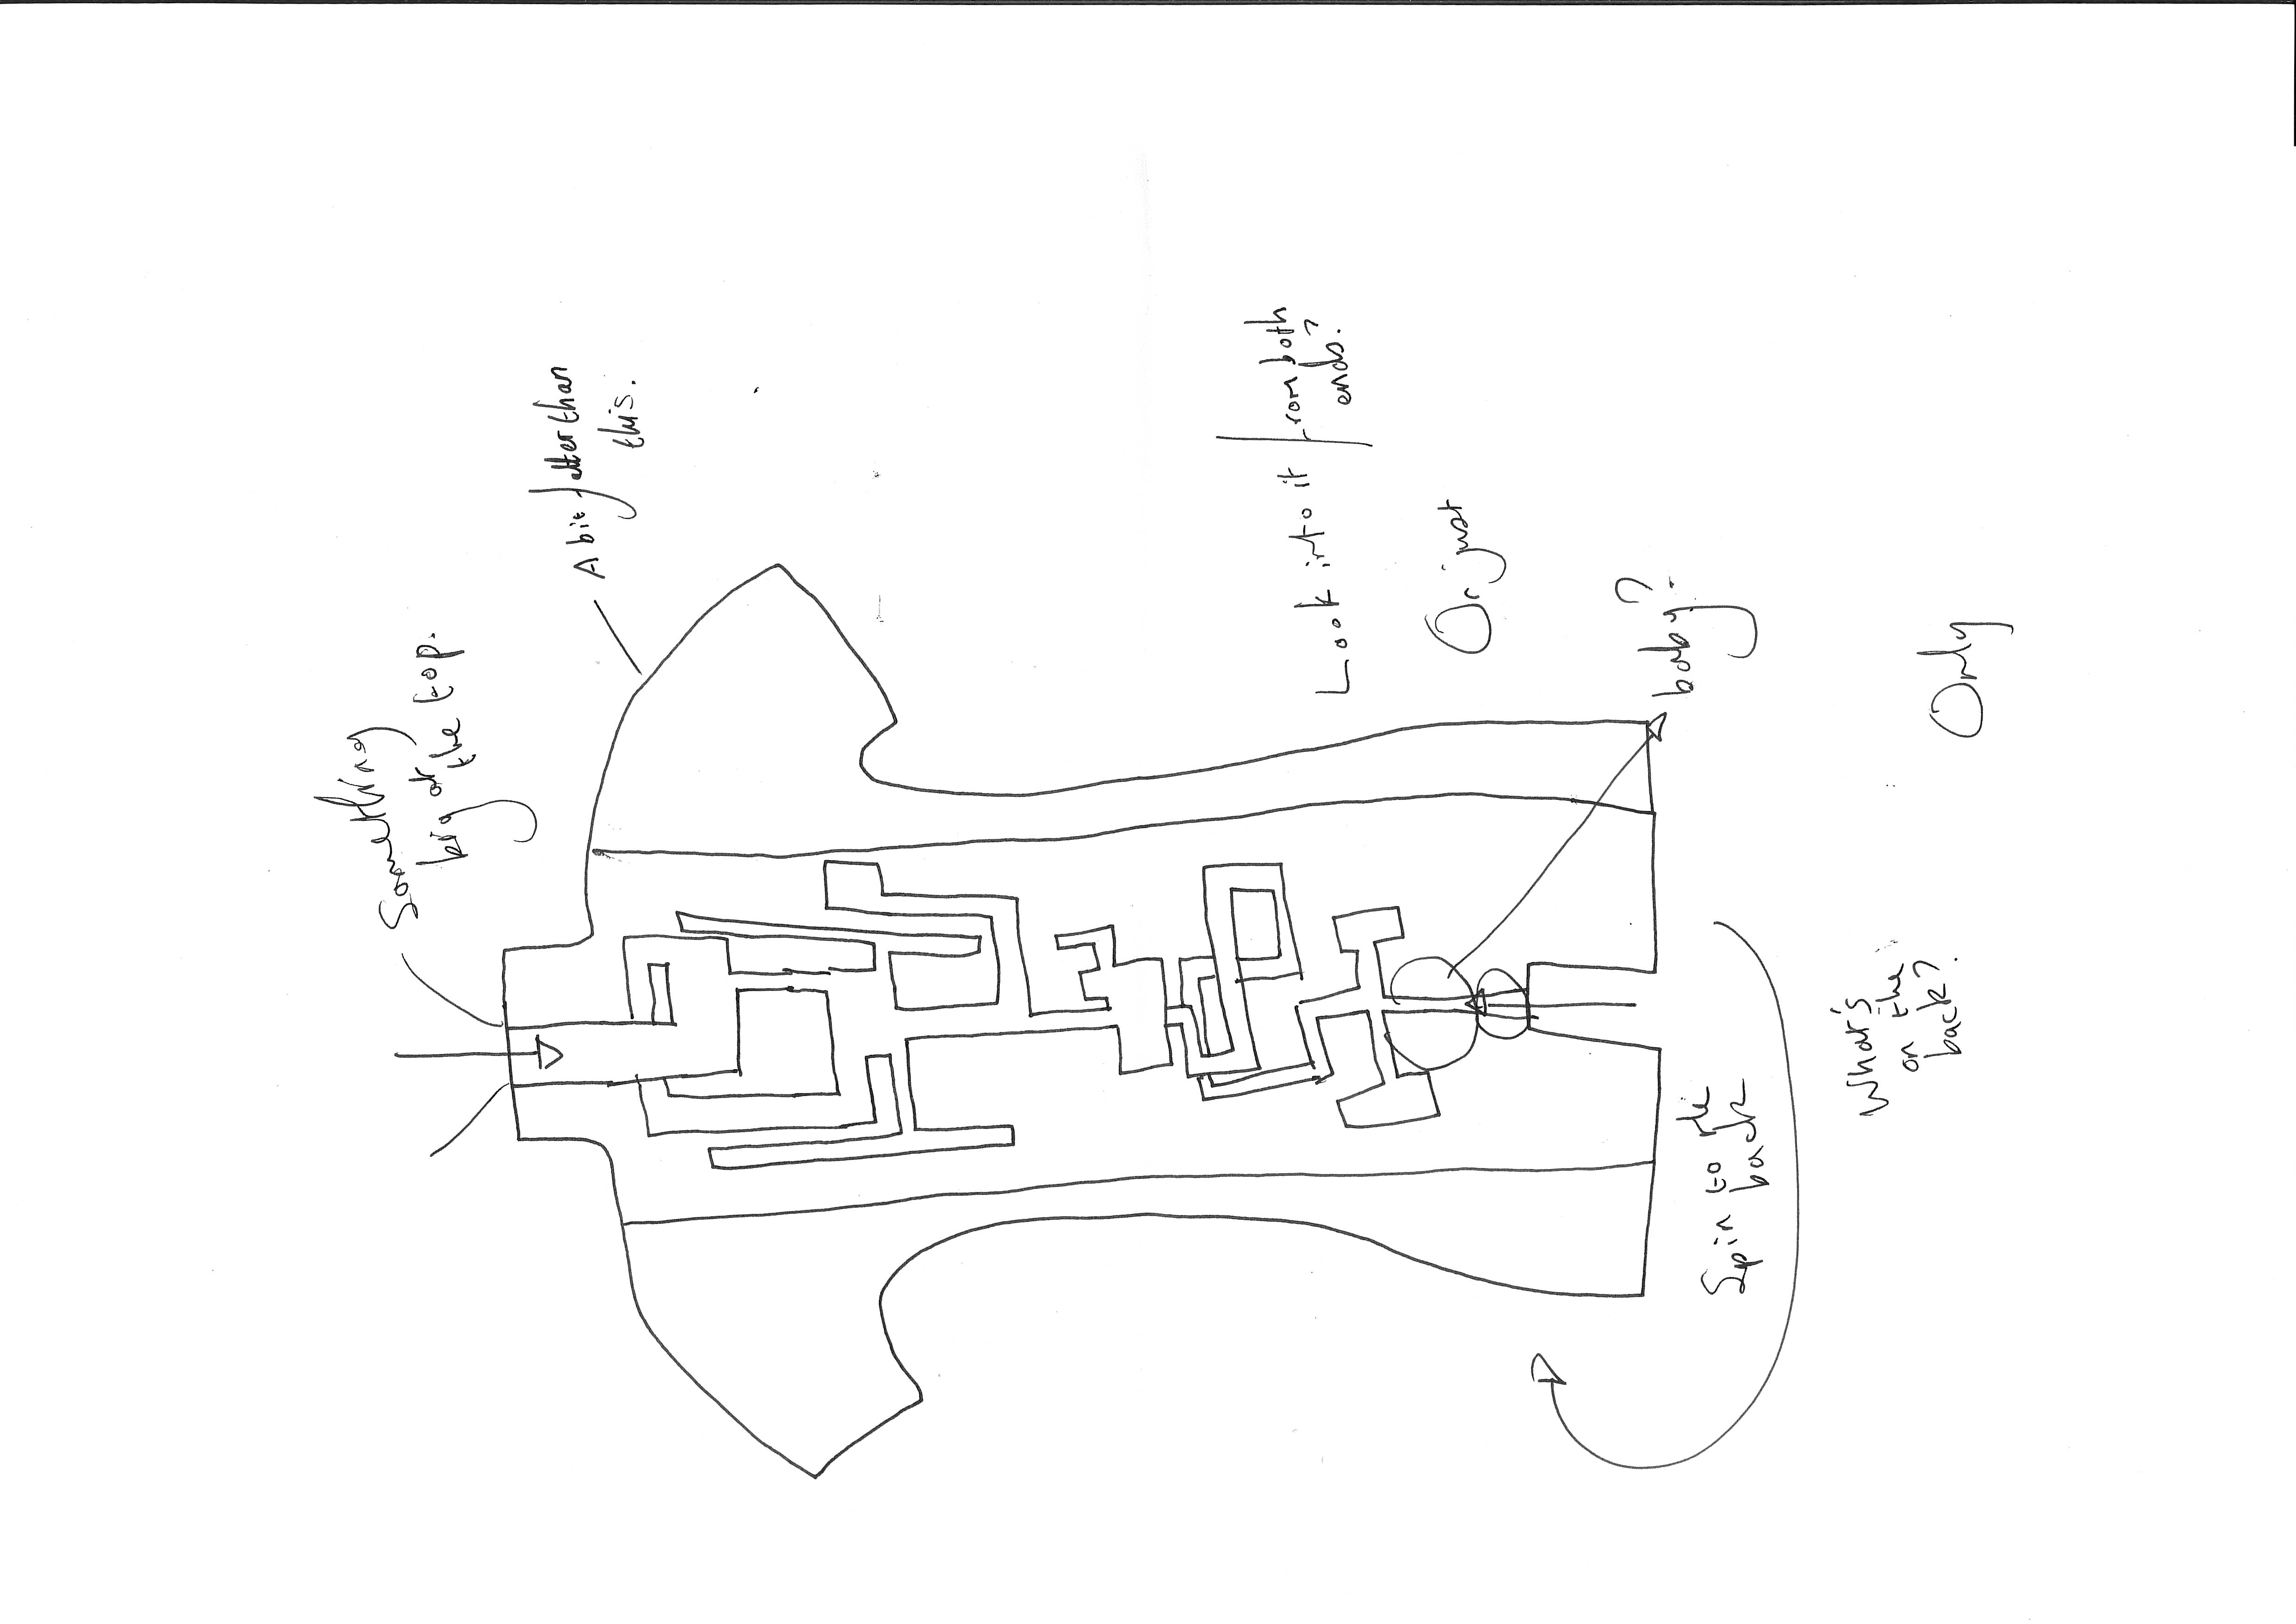 Something
big at
the top.
A bit fatter than
this.
Look into it from both
ends?
Or just
baby?
Spin to the
back
What's
on the
back?
Only